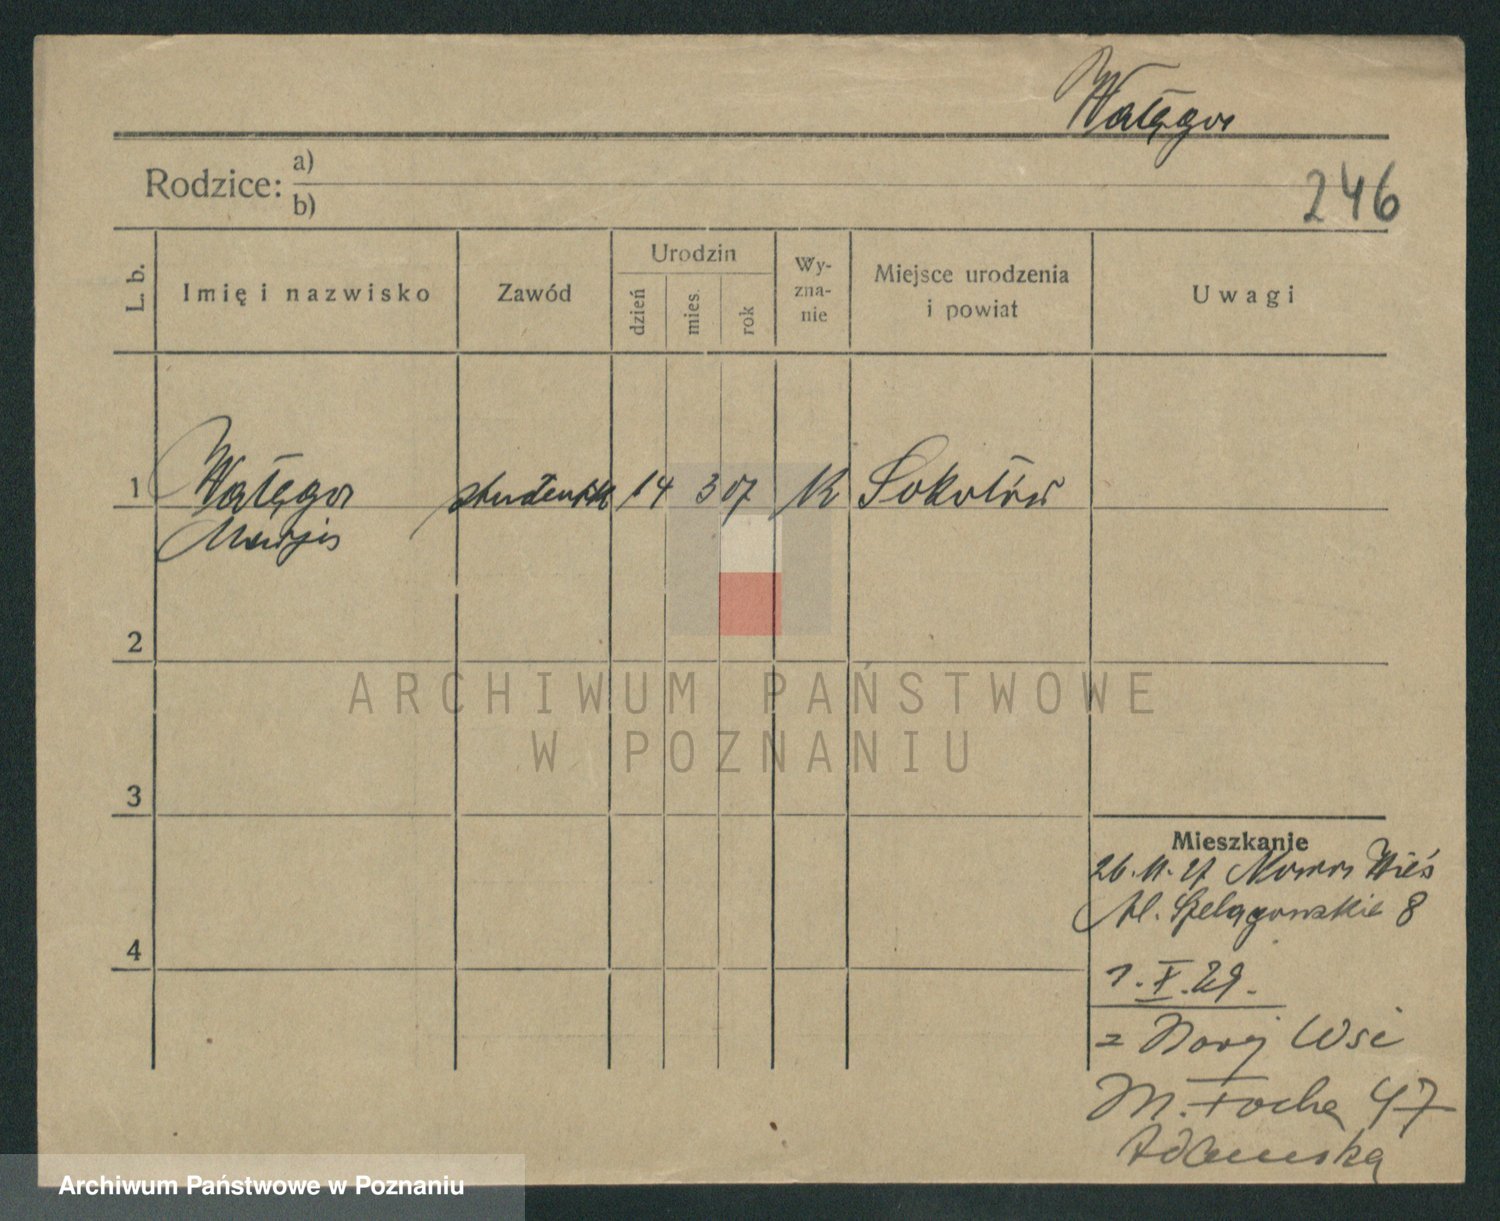 Wałęga
Rodzice: a)
b)
246
L. b.
Imię i nazwisko
Zawód
Urodzin
dzień
mies.
rok
Wy-
zna-
nie
Miejsce urodzenia
i powiat
Uwagi
1 Wałęga student 14 3 07 K Sokołów
2
3
4
Mieszkanie
26.11.27 Nowa Wieś
Al. Szelągowskie 8
1.X.29.
z Nowej Wsi
M. Focha 47
Adamska
ARCHIWUM PAŃSTWOWE
W POZNANIU
Archiwum Państwowe w Poznaniu